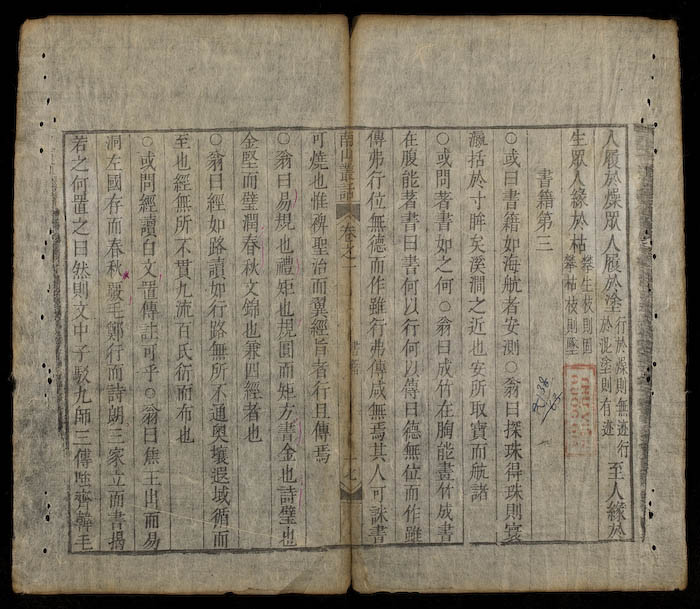 人履於燥眾人履於塗行於燥則無迹行於泥塗則有迹至人緣於
生眾人緣於枯攀生枝則固攀枯枝則墜
書籍第三
○或曰書籍如海航者安測○翁曰探珠得珠則寰
瀛括於寸眸矣溪澗之近也安所取寶而航諸
○或問著書如之何○翁曰成竹在胸能畫竹成書
在腹能著書曰書何以行何以傳曰德無位而作雖
傳弗行位無德而作雖行弗傳咸無焉其人可誅書
南山叢話 卷之一
可燒也惟裨聖治而翼經旨者行且傳焉
○翁曰易規也禮矩也規圓而矩方書金也詩璧也
金堅而璧潤春秋文錦也兼四經者也
○翁曰經如路讀如行路無所不通奧壤遐域循而
至也經無所不貫九流百氏衍而布也
○或問經讀白文置傳註可乎○翁曰焦王出而易
洞左國存而春秋嚴毛鄭行而詩朗三家立而書揭
若之何置之曰然則文中子駁九師三傳齊韓毛